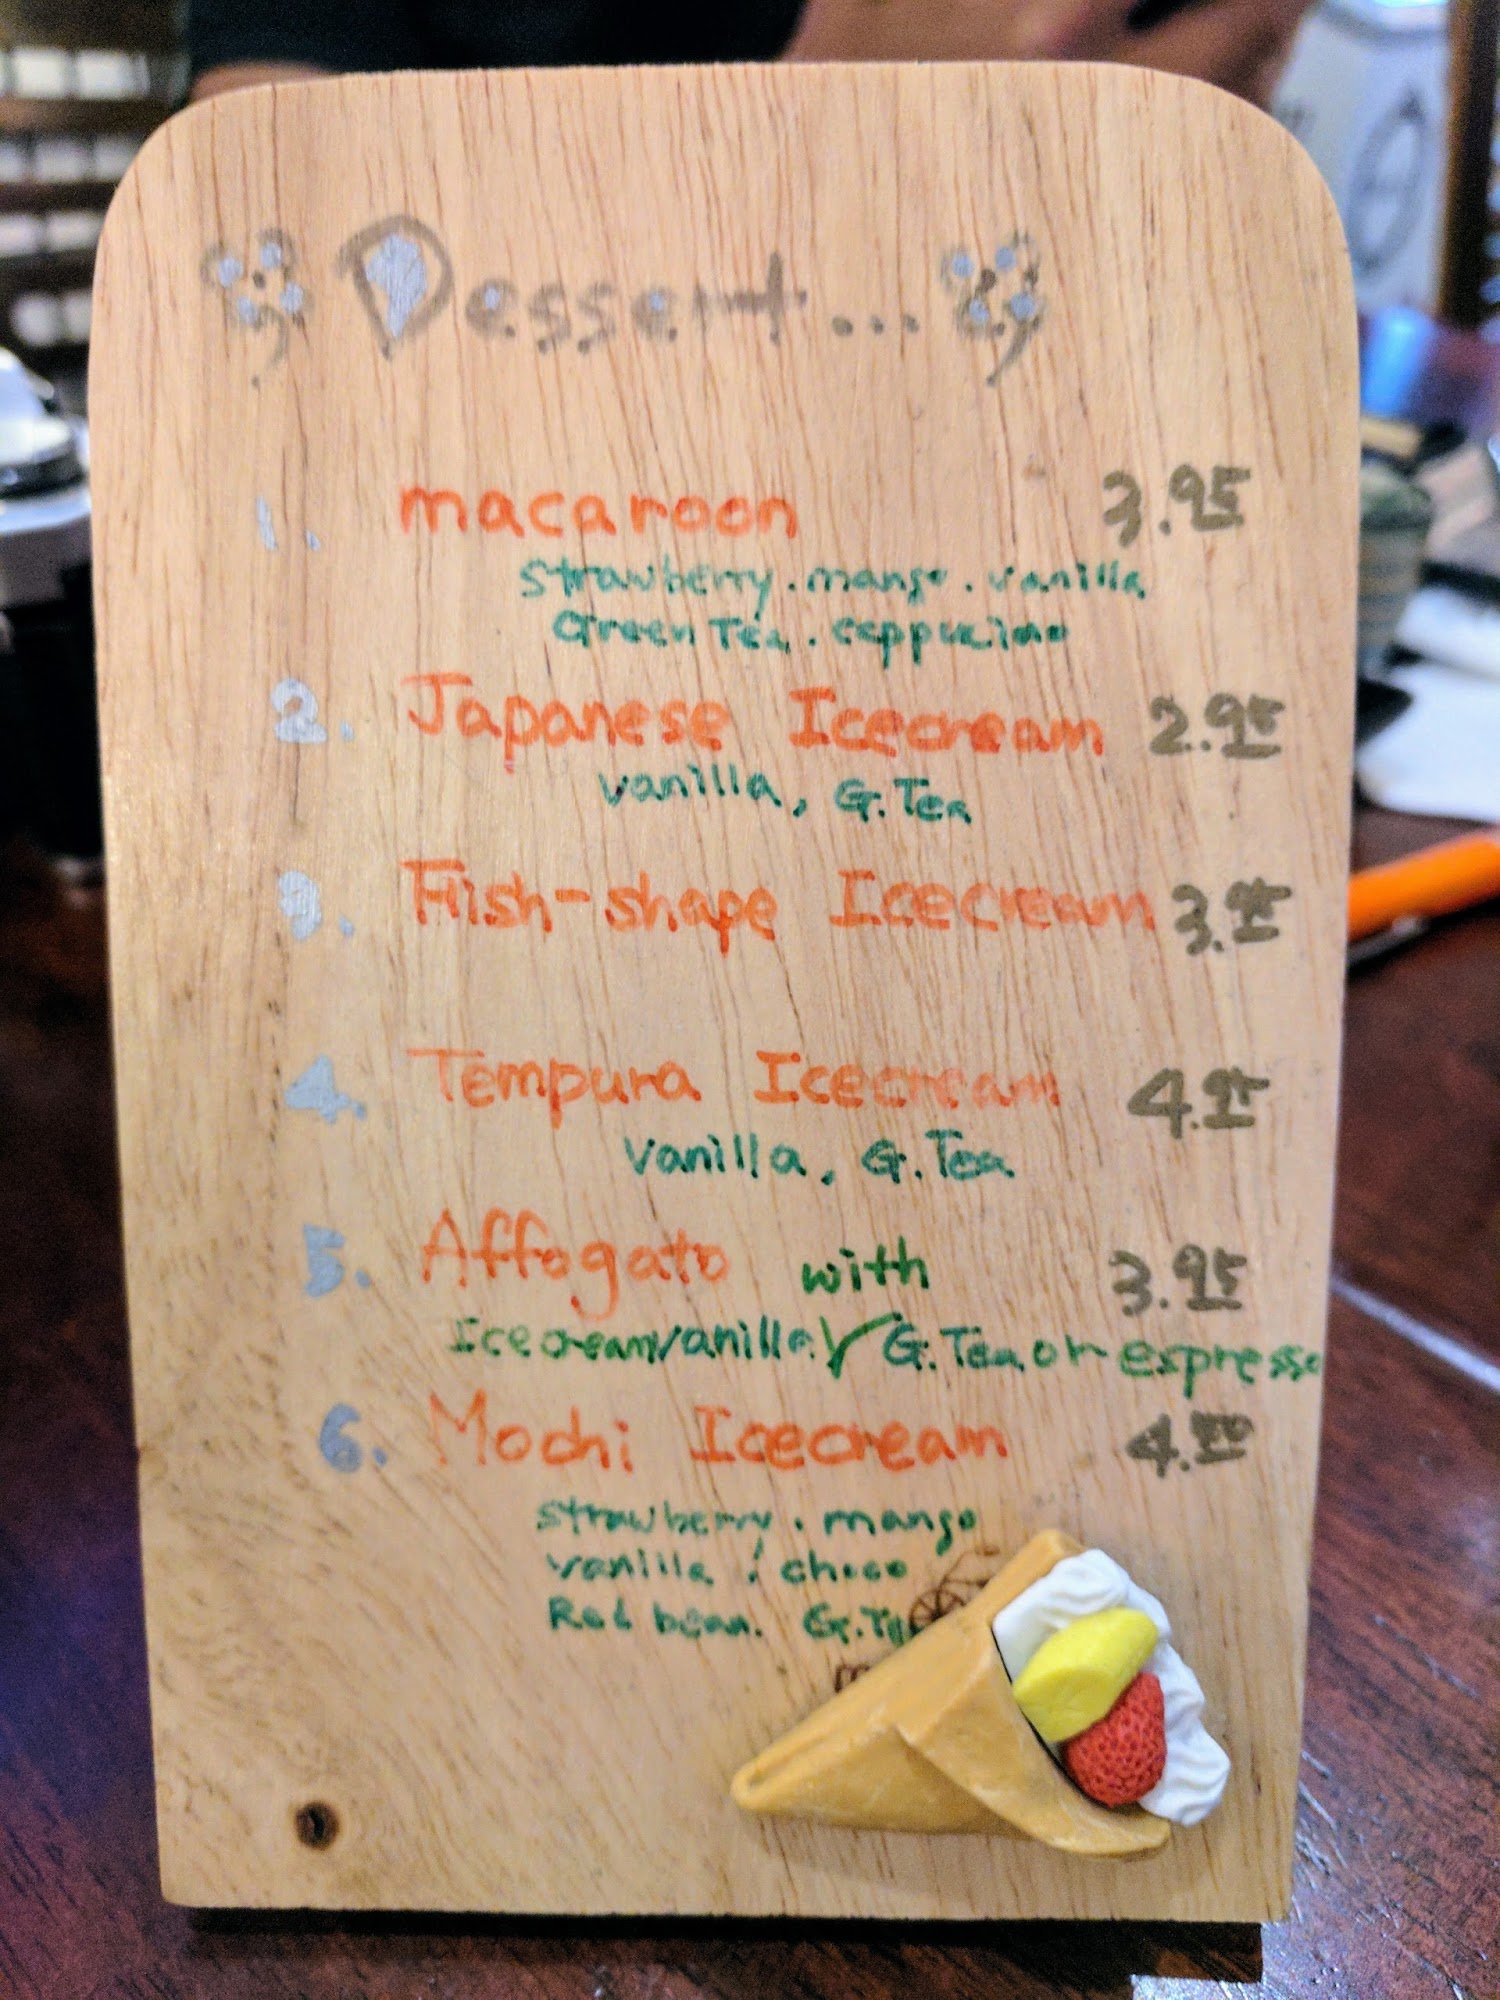 Dessert...
1. macaroon 3.95
strawberry. mango. vanilla
Green Tea. cappucino
2. Japanese Icecream 2.95
vanilla, G.Tea
3. Fish-shape Icecream 3.95
4. Tempura Icecream 4.95
vanilla, G.Tea
5. Affogato with 3.95
Icecream vanilla. G.Tea or espresso
6. Mochi Icecream 4.50
strawberry. mango
vanilla / choco
Red bean. G.Tea